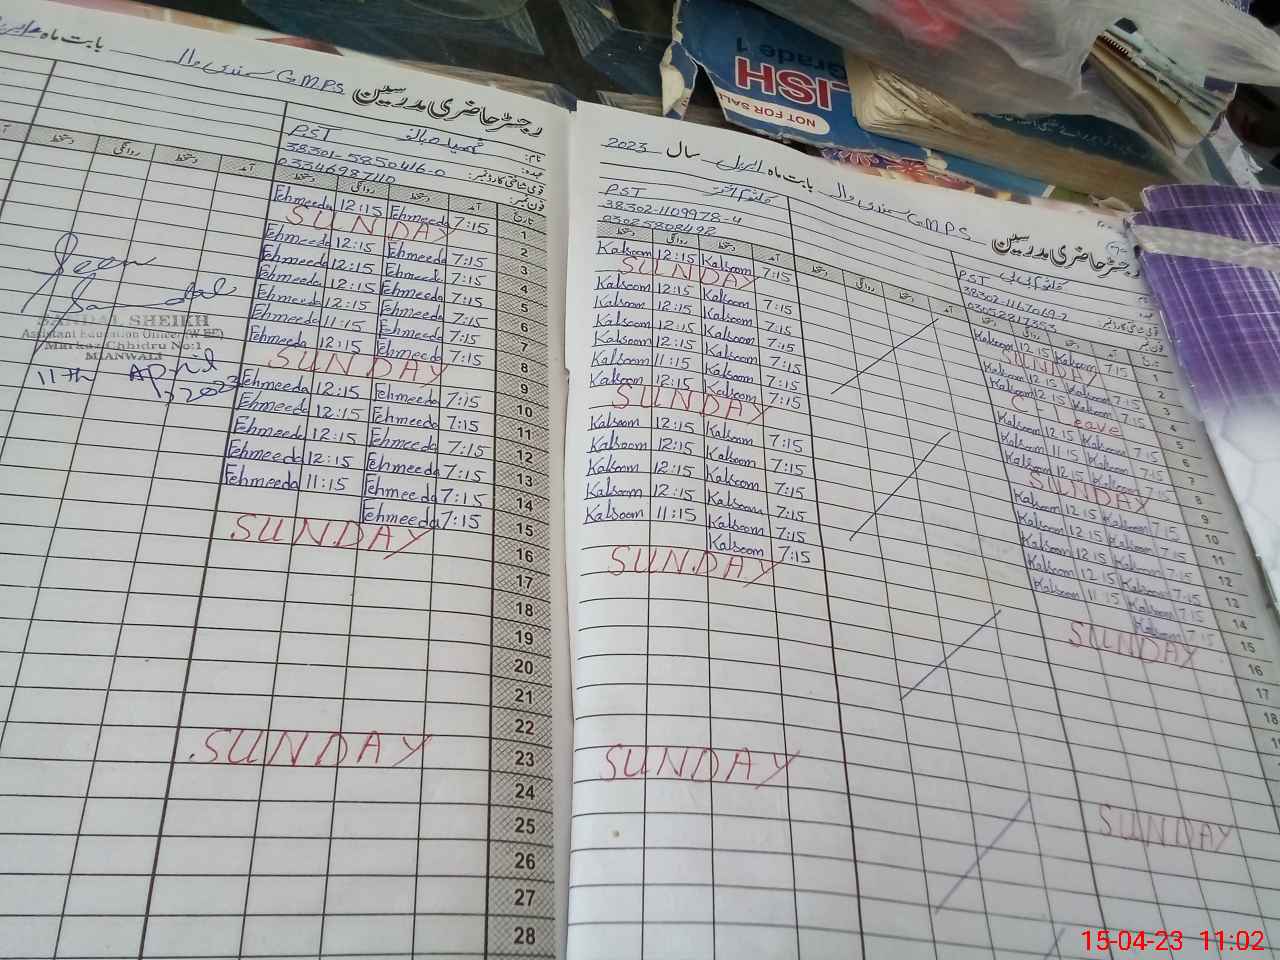 رجسٹر حاضری مدرسین G.M.P.S سندی والہ بابت ماہ
نام:
عہدہ: PST
قومی شناختی کارڈ نمبر: 38301-5850416-0
فون نمبر: 03346987110
تاریخ آمد دستخط روانگی دستخط آمد دستخط روانگی دستخط
1 7:15 Fehmeeda 12:15 Fehmeeda
2 SUNDAY
3 7:15 Fehmeeda 12:15 Fehmeeda
4 7:15 Fehmeeda 12:15 Fehmeeda
5 7:15 Fehmeeda 12:15 Fehmeeda
6 7:15 Fehmeeda 12:15 Fehmeeda
7 7:15 Fehmeeda 11:15 Fehmeeda
8 7:15 Fehmeeda 12:15 Fehmeeda
9 SUNDAY
10 7:15 Fehmeeda 12:15 Fehmeeda
11 7:15 Fehmeeda 12:15 Fehmeeda
12 7:15 Fehmeeda 12:15 Fehmeeda
13 7:15 Fehmeeda 12:15 Fehmeeda
14 7:15 Fehmeeda 11:15 Fehmeeda
15 7:15 Fehmeeda
16 SUNDAY
17
18
19
20
21
22
23 SUNDAY
24
25
26
27
28
Seen
SANDAL SHEIKH
Assistant Education Officer (W-EE)
Markaz Chhidru No:1
MIANWALI
11th April, 2023
رجسٹر حاضری مدرسین G.M.P.S سندی والہ بابت ماہ اپریل سال 2023
PST
38302-1167069-2
03052217353
PST
38302-1109978-4
03025808492
آمد دستخط روانگی دستخط آمد دستخط روانگی دستخط
7:15 Kalsoom 12:15 Kalsoom
SUNDAY
7:15 Kalsoom 12:15 Kalsoom
7:15 Kalsoom 12:15 Kalsoom
7:15 Kalsoom 12:15 Kalsoom
7:15 Kalsoom 12:15 Kalsoom
7:15 Kalsoom 11:15 Kalsoom
7:15 Kalsoom 12:15 Kalsoom
SUNDAY
7:15 Kalsoom 12:15 Kalsoom
7:15 Kalsoom 12:15 Kalsoom
7:15 Kalsoom 12:15 Kalsoom
7:15 Kalsoom 12:15 Kalsoom
7:15 Kalsoom 11:15 Kalsoom
7:15 Kalsoom
SUNDAY
SUNDAY
1 7:15 Kalsoom 12:15 Kalsoom
2 SUNDAY
3 7:15 Kalsoom 12:15 Kalsoom
4 7:15 Kalsoom 12:15 Kalsoom
5 C-Leave
6 7:15 Kalsoom 12:15 Kalsoom
7 7:15 Kalsoom 11:15 Kalsoom
8 7:15 Kalsoom 12:15 Kalsoom
9 SUNDAY
10 7:15 Kalsoom 12:15 Kalsoom
11 7:15 Kalsoom 12:15 Kalsoom
12 7:15 Kalsoom 12:15 Kalsoom
13 7:15 Kalsoom 12:15 Kalsoom
14 7:15 Kalsoom 11:15 Kalsoom
15 7:15 Kalsoom
16 SUNDAY
17
18
SUNDAY
LISH
Grade 1
NOT FOR SALE
15-04-23 11:02